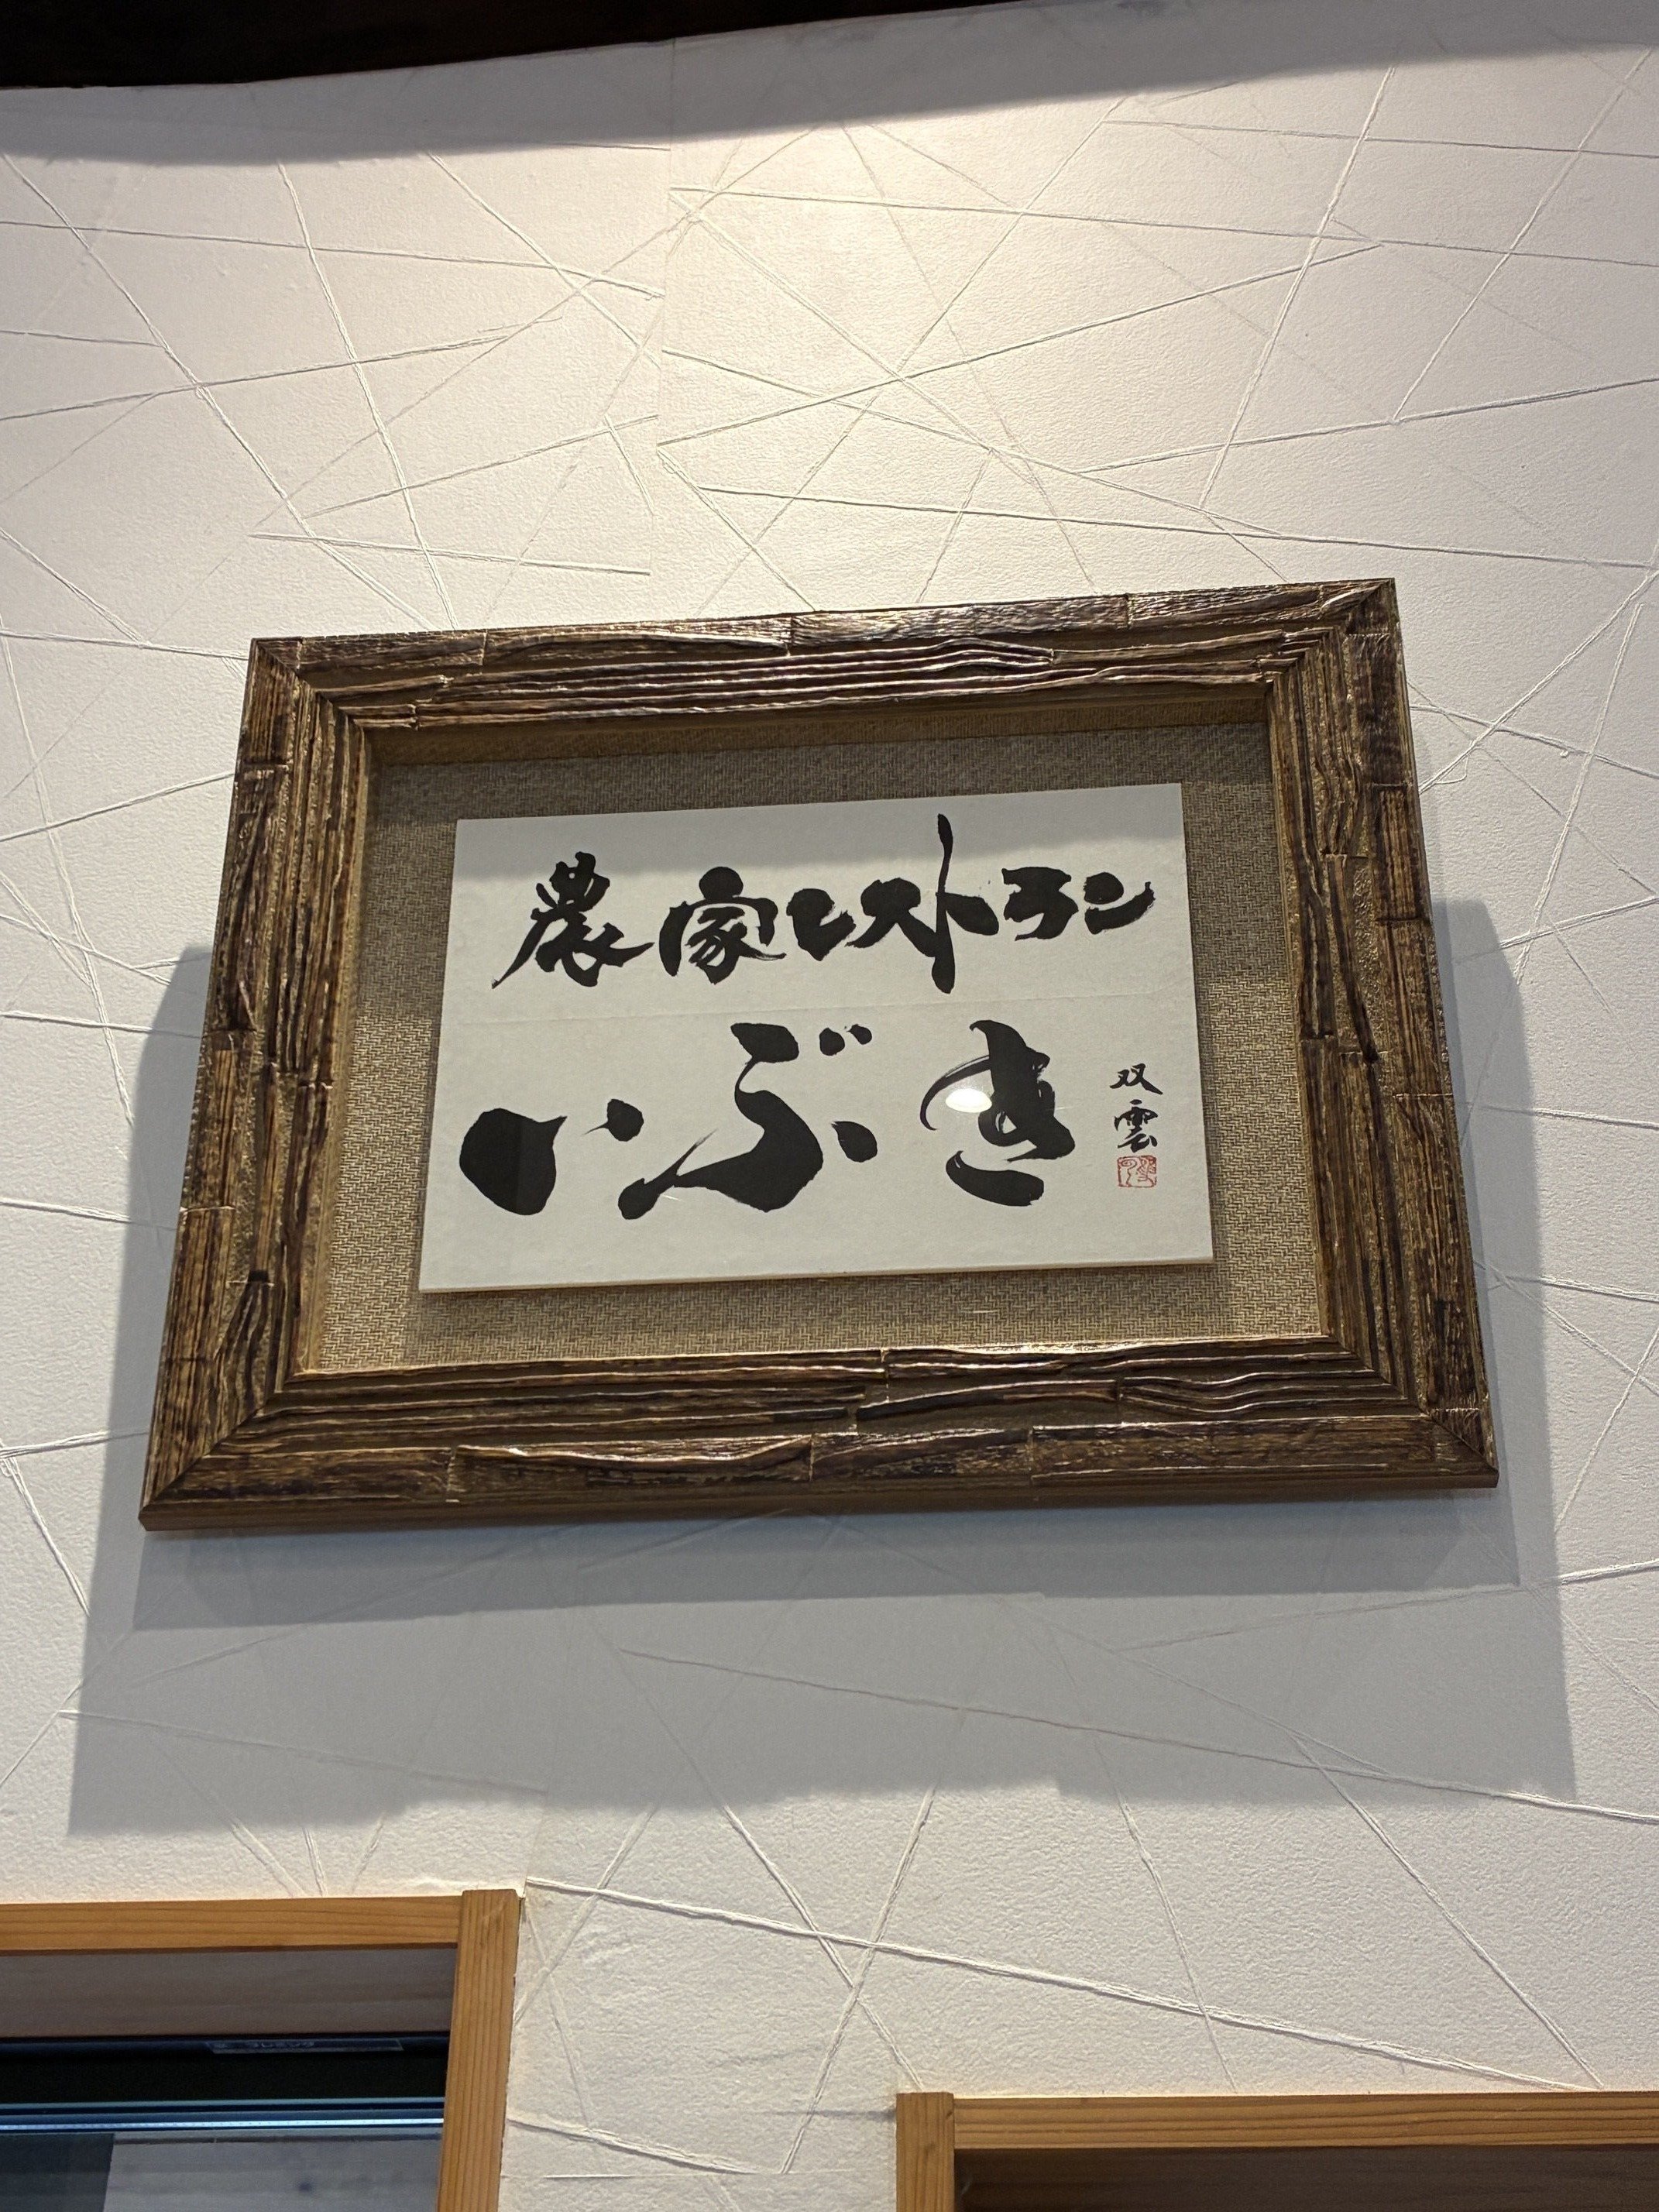 農家レストラン
いぶき
双雲